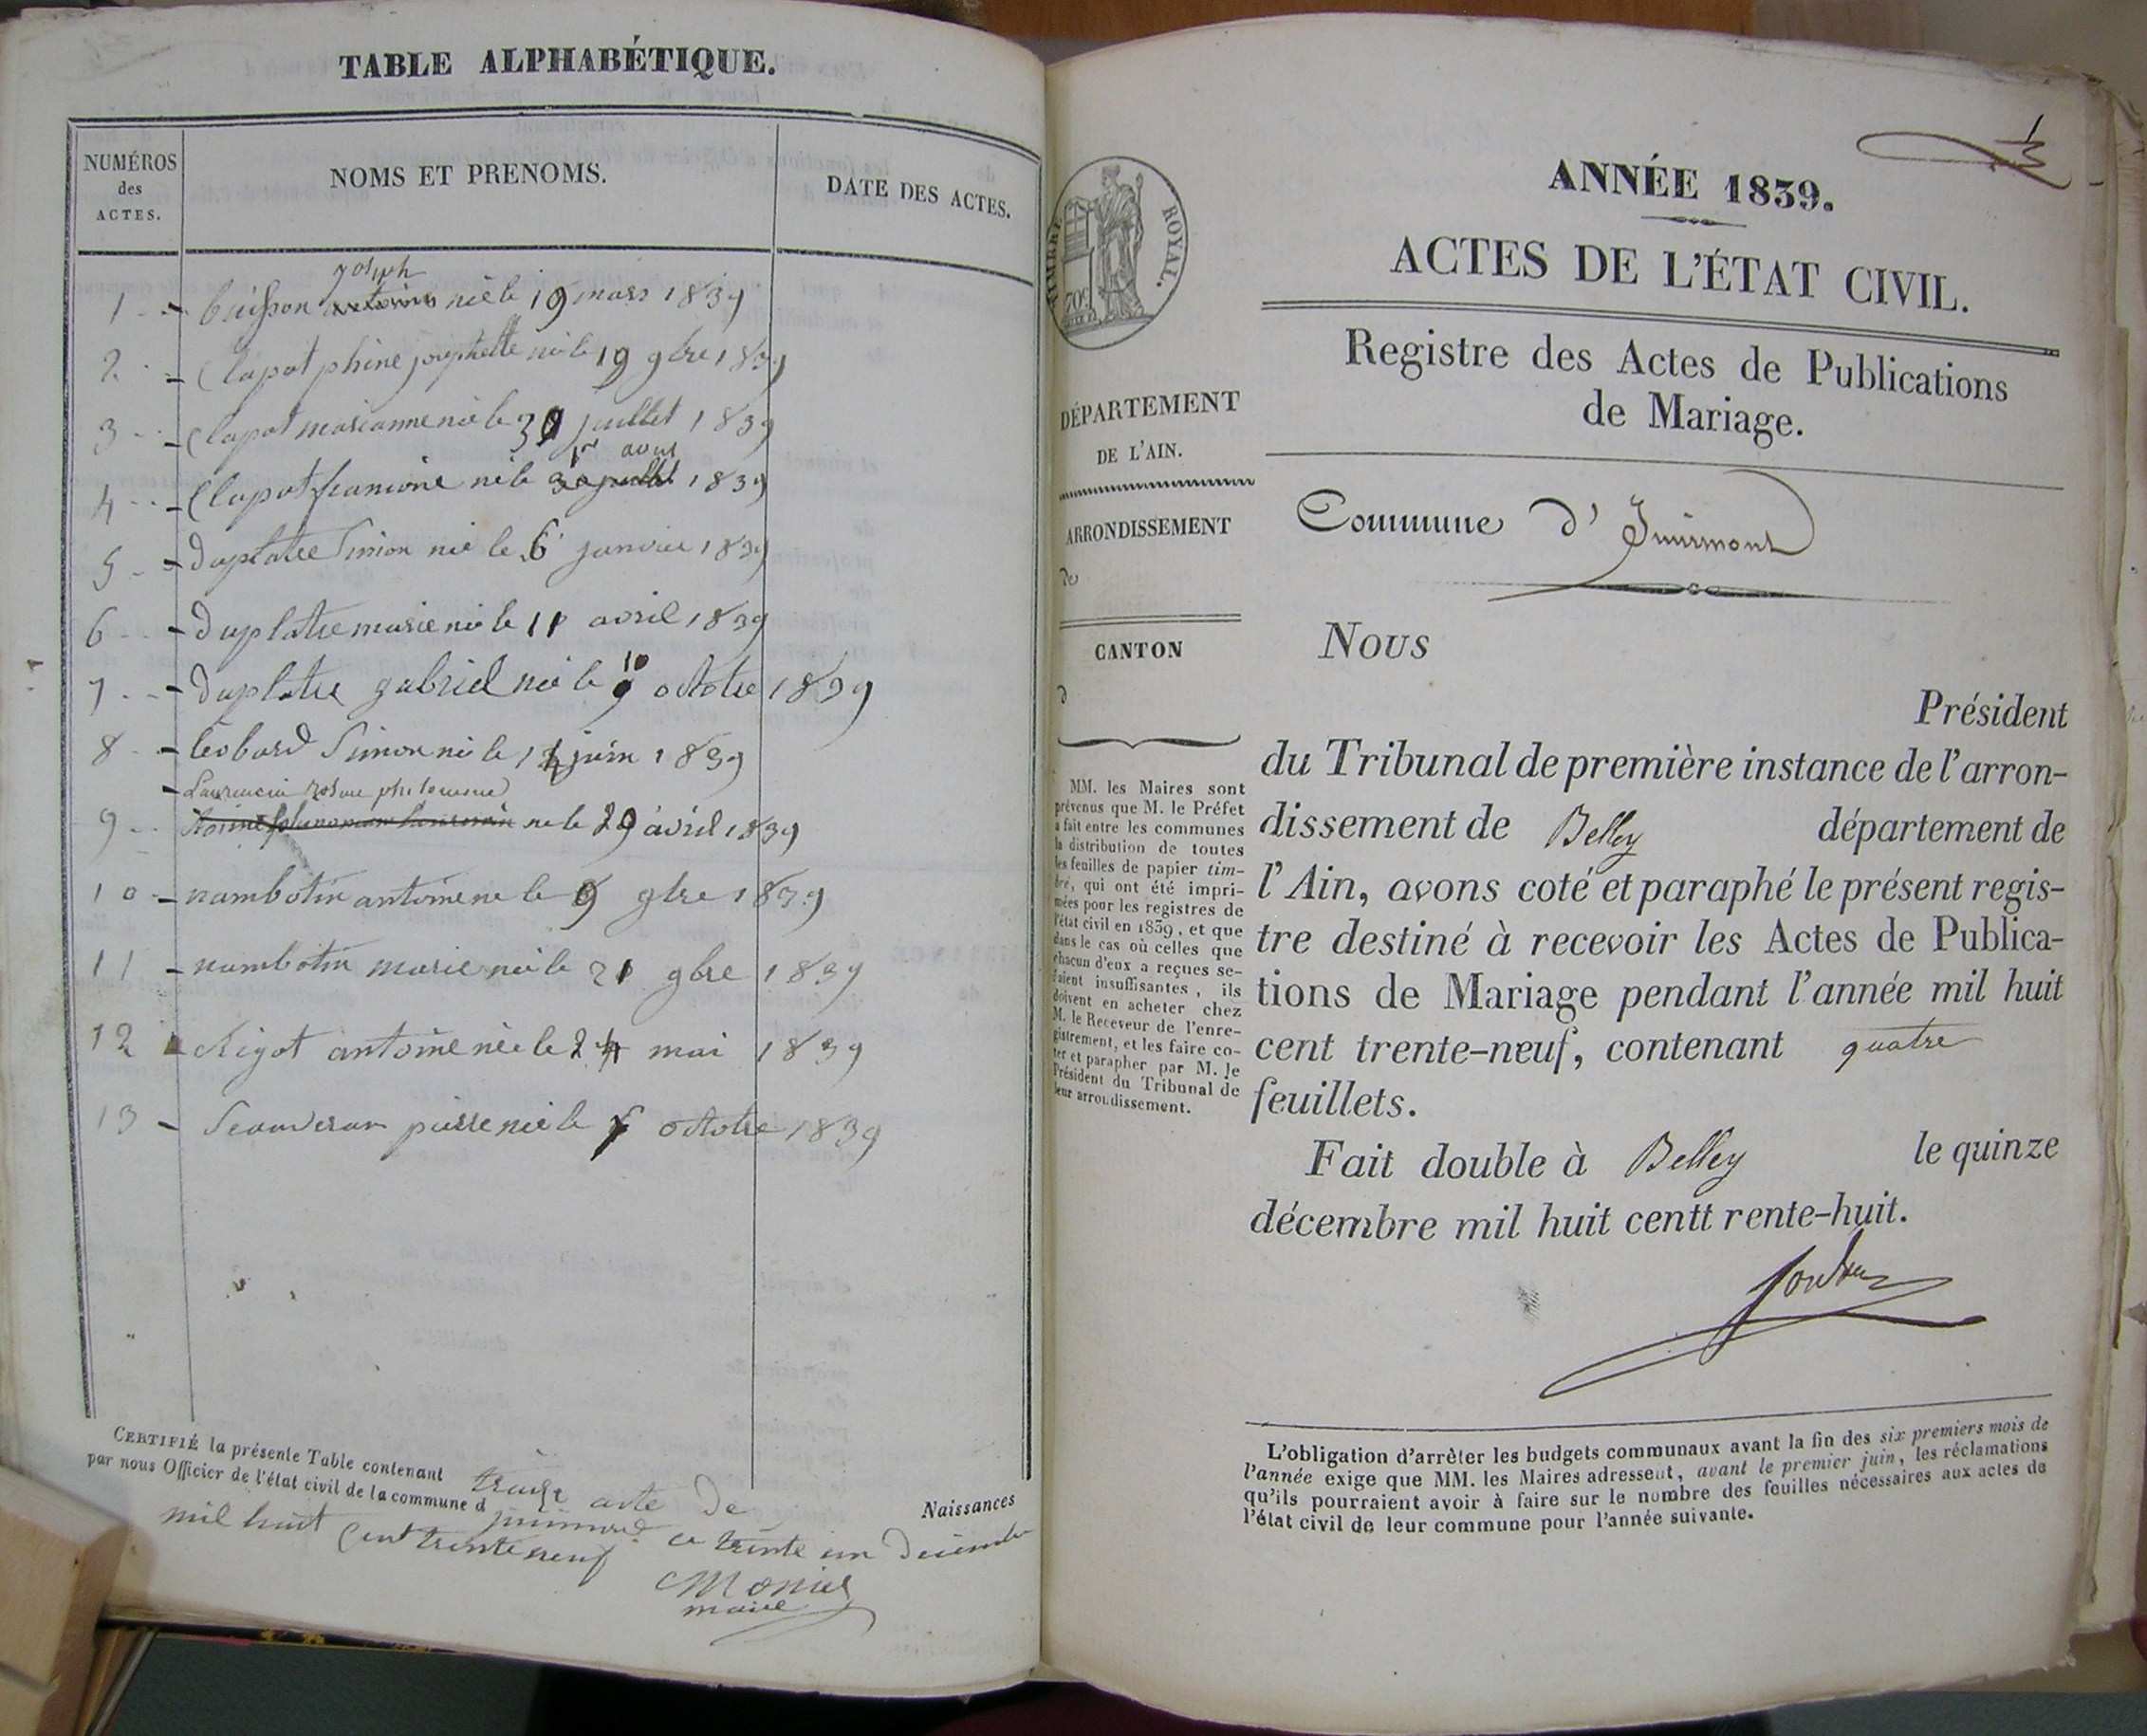 TABLE ALPHABÉTIQUE.
NUMÉROS
des
ACTES.
NOMS ET PRENOMS.
DATE DES ACTES.
joseph
1 - buisson né le 19 mars 1839
2 - Clapot phine josephette né le 19 9bre 1839
3 - Clapot marianne né le 30 juillet 1839
1er aout
4 - Clapot francoise né le 30 juillet 1839
5 - Duplatre Simon né le 6 janvier 1839
6 - Duplatre marie né le 11 avril 1839
10
7 - Duplatre gabriel né le 9 octobre 1839
8 - Leobard Simon né le 14 juin 1839
Laurencin philomene
9 - né le 29 avril 1839
10 - nambotin antoine né le 9 9bre 1839
11 - nambotin marie né le 21 9bre 1839
12 - Rigot antoine né le 24 mai 1839
13 - pierre né le octobre 1839
CERTIFIÉ la présente Table contenant treize acte de Naissances
par nous Officier de l'état civil de la commune d ce trente un Decembre
mil huit Cent trente neuf
Monier
maire
TIMBRE ROYAL.
70c
DÉPARTEMENT
DE L'AIN.
ARRONDISSEMENT
de
CANTON
d
MM. les Maires sont
prévenus que M. le Préfet
a fait entre les communes
la distribution de toutes
les feuilles de papier tim-
bré, qui ont été impri-
mées pour les registres de
l'état civil en 1839, et que
dans le cas où celles que
chacun d'eux a reçues se-
raient insuffisantes, ils
doivent en acheter chez
M. le Receveur de l'enre-
gistrement, et les faire co-
ter et parapher par M. le
Président du Tribunal de
leur arrondissement.
ANNÉE 1839.
ACTES DE L'ÉTAT CIVIL.
Registre des Actes de Publications
de Mariage.
Commune d' Inirmont
Nous
Président
du Tribunal de première instance de l'arron-
dissement de Belley département de
l'Ain, avons coté et paraphé le présent regis-
tre destiné à recevoir les Actes de Publica-
tions de Mariage pendant l'année mil huit
cent trente-neuf, contenant quatre
feuillets.
Fait double à Belley le quinze
décembre mil huit centt rente-huit.
L'obligation d'arrêter les budgets communaux avant la fin des six premiers mois de
l'année exige que MM. les Maires adressent, avant le premier juin, les réclamations
qu'ils pourraient avoir à faire sur le nombre des feuilles nécessaires aux actes de
l'état civil de leur commune pour l'année suivante.